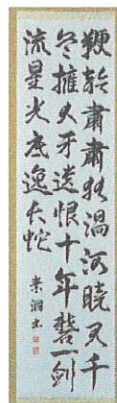 鞭聲肅肅夜過河曉見千
兵擁大牙遺恨十年磨一劍
流星光底逸長蛇